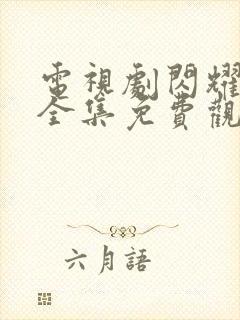 電視劇閃耀
全集免費觀
六月語